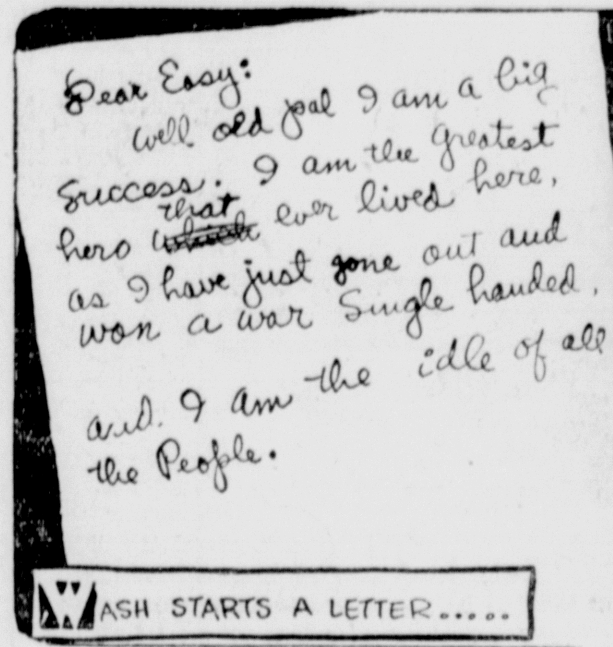 Dear Easy:
Well old pal I am a big
Success. I am the greatest
that
hero which ever lived here,
as I have just gone out and
won a war Single handed,
and. I am the idle of all
the People.
WASH STARTS A LETTER.....